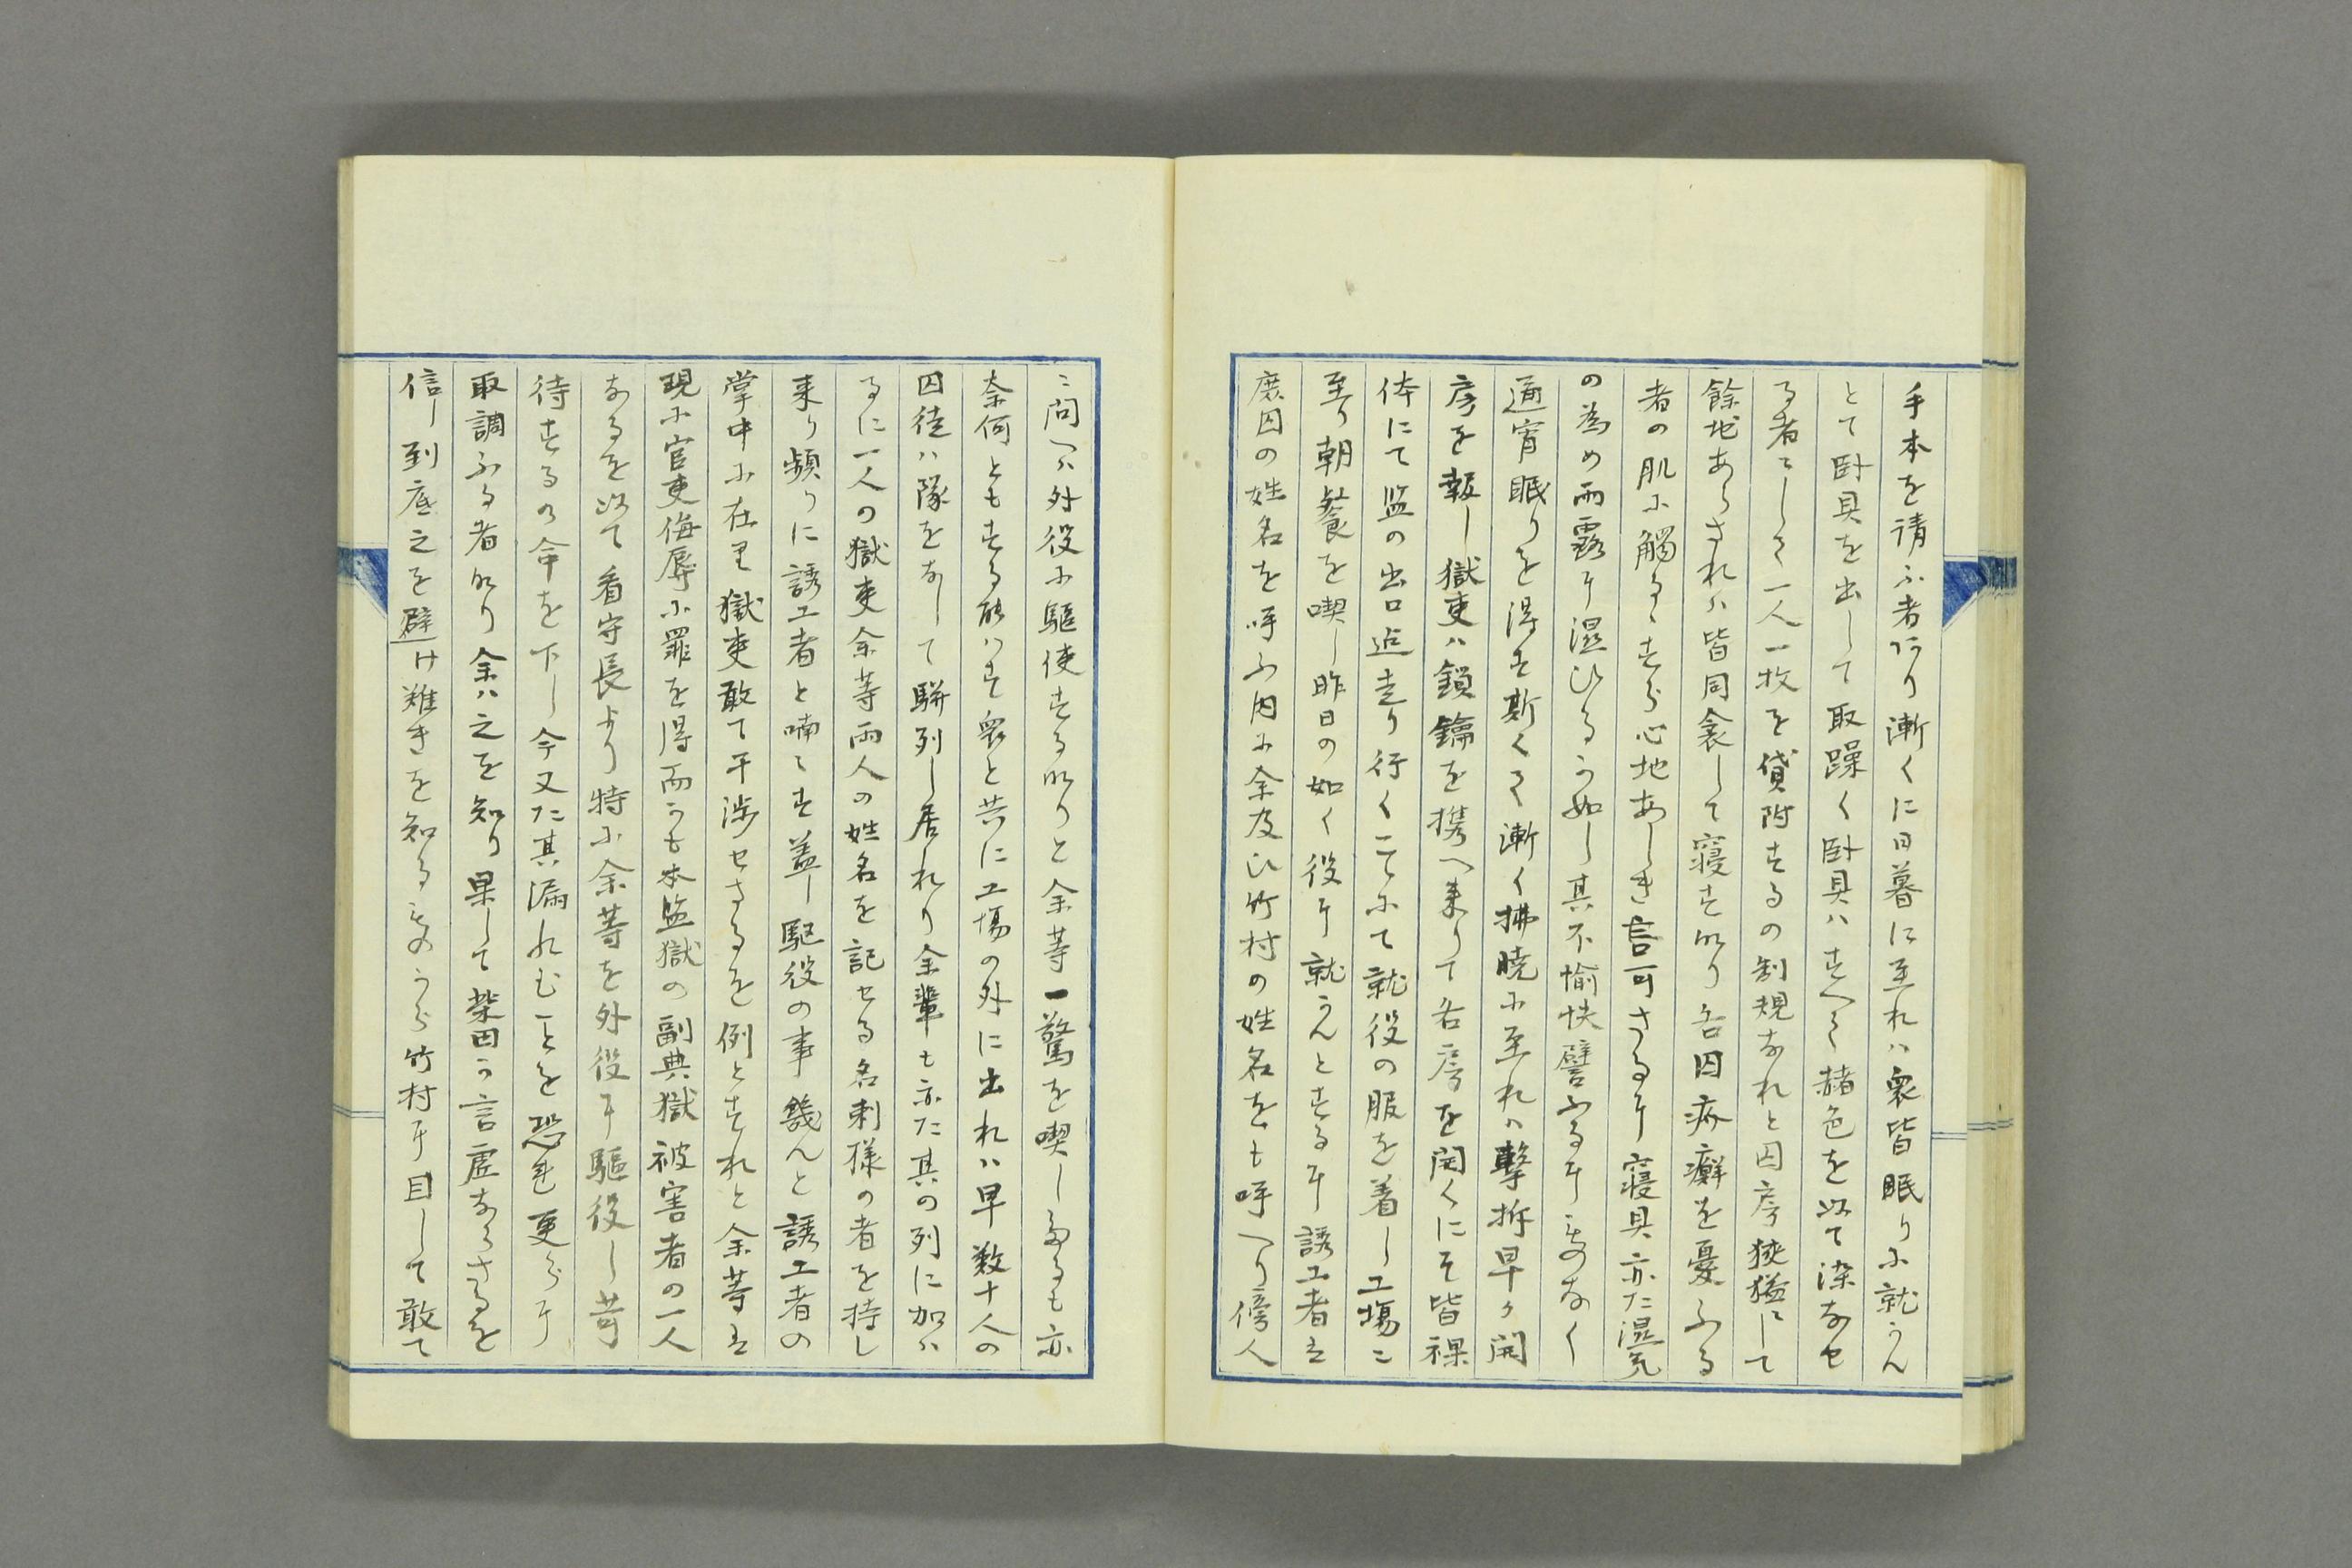 手本を請ふ者あり漸くに日暮に至れハ衆皆眠りに就かん
とて臥具を出して取躁く臥具ハすへて赭色を以て染なせ
る者にして一人一枚を貸附するの制規なれと囚房狹隘にして
餘地あらされハ皆同衾して寝す所り各囚疥癬を憂ふる
者の肌に觸るゝすら心地あしき言可さるに寝具亦た濕氣
の為め雨露に湿ひるか如し其不愉快譬ふるに物なく
通宵眠りを得す斯くて漸く拂曉に至れハ撃柝早ク開
房を報し獄吏ハ鎖鑰を携へ来りて各房を開くにそ皆裸
体にて監の出口迄走り行くこゝにて就役の服を着し工塲ニ
至り朝餐を喫し昨日の如く役に就かんとするに誘工者は
庶囚の姓名を呼ふ内に余及ひ竹村の姓名をも呼へり傍人
ニ問へハ外役に驅使する所りと余等一驚を喫したるも亦
奈何ともする能ハす衆と共に工塲の外に出れハ早数十人の
囚徒ハ隊をなして駢列し居れり余輩も亦た其の列に加ハ
るに一人の獄吏余等両人の姓名を記せる名刺様の者を持し
来り頻りに誘工者と喃々す蓋し駆役の事幾んと誘工者の
掌中に在り獄吏敢て干渉せさるを例とすれと余等は
現に官吏侮辱に罪を得而かも本監獄の副典獄被害者の一人
なるを以て看守長より特に余等を外役に驅役し苛
待するの命を下し今又た其漏れむことを恐れ更らに
取調ふる者所り余ハ之を知り果して柴田か言虚ならさるを
信し到底之を避け難きを知るものから竹村に目して敢て